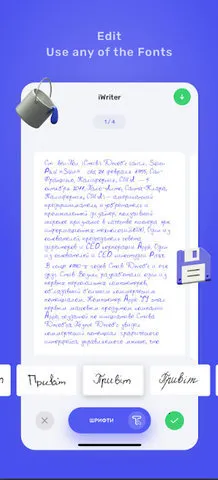 Edit
Use any of the Fonts
iWriter
1 / 4
Paul «Steve» Jobs; 24 февраля 1955, Сан-
Франциско, Калифорния, США — 5
октября 2011, Пало-Алто, Санта-Клара,
Калифорния, США) — американский
предприниматель, изобретатель и
промышленный дизайнер, получивший
широкое признание в качестве пионера эры
информационных технологий. Один из
основателей, председатель совета
директоров и CEO корпорации Apple. Один
из основателей и CEO киностудии Pixar.
В конце 1970-х годов Стив Джобс и его
друг Стив Возняк разработали один из
первых персональных компьютеров,
обладавший большим коммерческим
потенциалом. Компьютер Apple II стал
первым массовым продуктом компании
Apple, созданной по инициативе Стива
Джобса. Позднее Джобс увидел
коммерческий потенциал графического
интерфейса, управляемого мышью, что
Привіт Привіт Привіт
ШРИФТИ